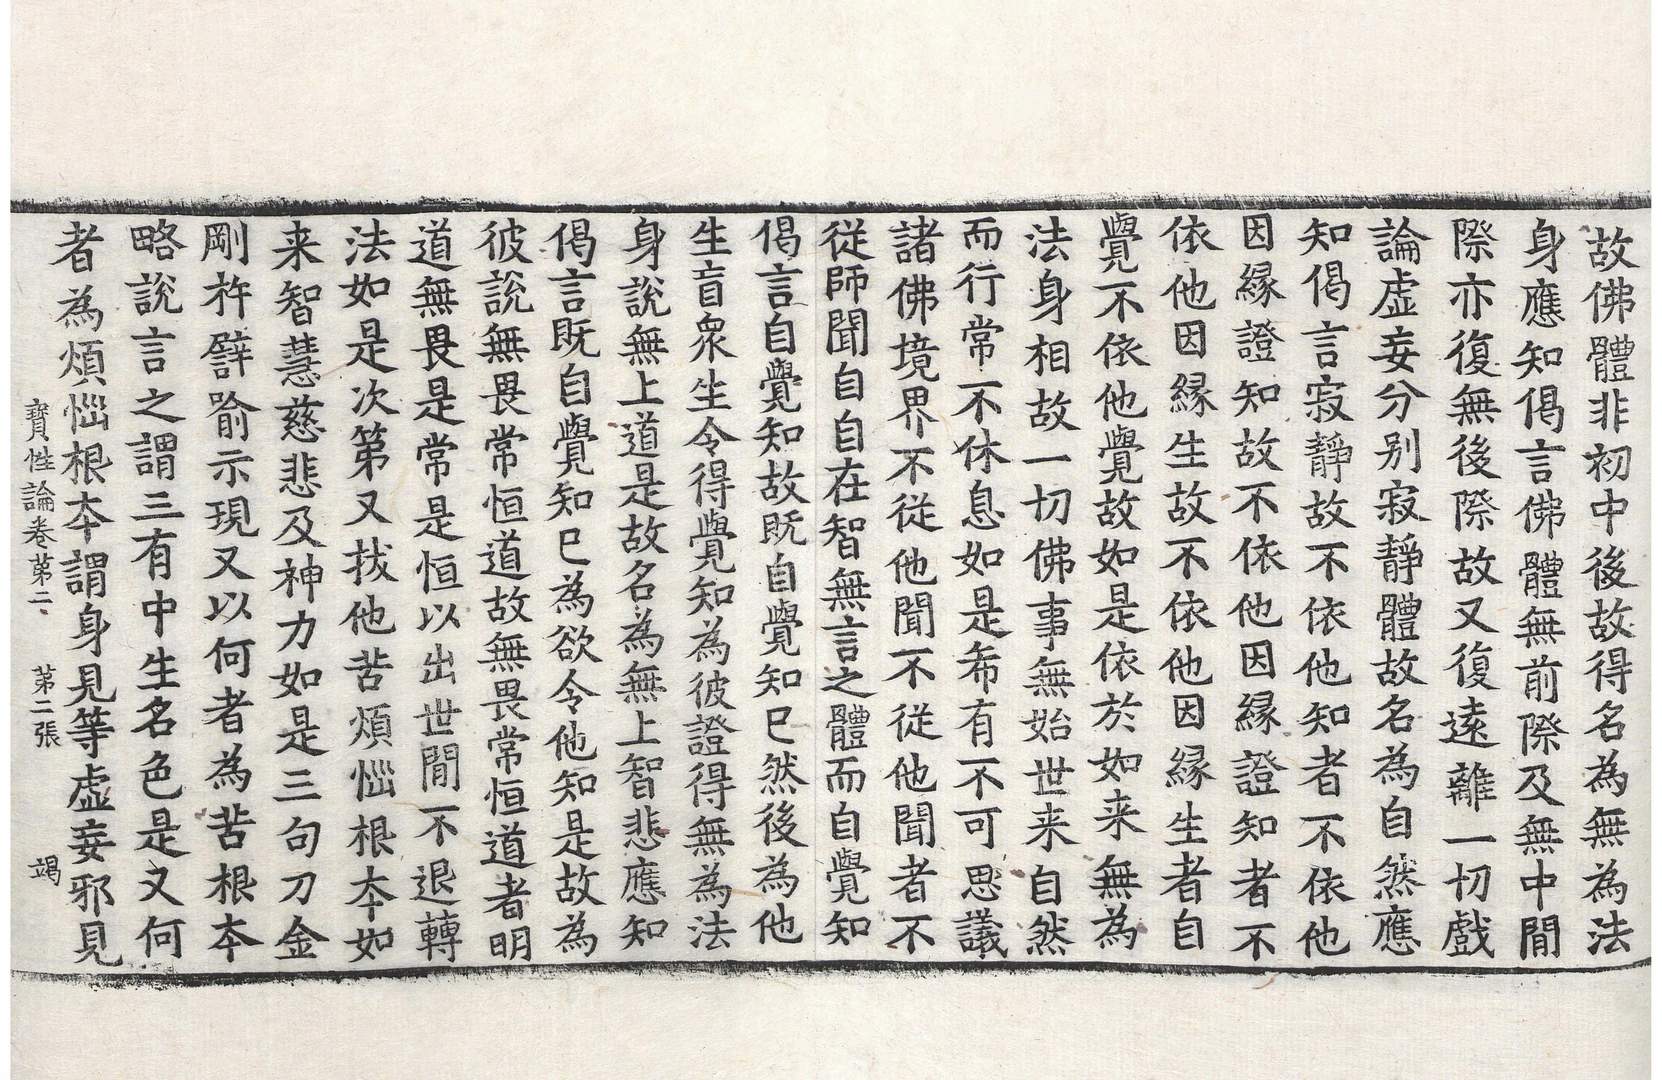 故佛體非初中後故得名為無為法
身應知偈言佛體無前際及無中閒
際亦復無後際故又復遠離一切戲
論虛妄分別寂靜體故名為自然應
知偈言寂靜故不依他知者不依他
因緣證知故不依他因緣證知者不
依他因緣生故不依他因緣生者自
覺不依他覺故如是依於如来無為
法身相故一切佛事無始世来自然
而行常不休息如是希有不可思議
諸佛境界不從他聞不從他聞者不
從師聞自自在智無言之體而自覺知
偈言自覺知故既自覺知已然後為他
生盲衆生令得覺知為彼證得無為法
身說無上道是故名為無上智悲應知
偈言既自覺知已為欲令他知是故為
彼說無畏常恒道故無畏常恒道者明
道無畏是常是恒以出世閒不退轉
法如是次第又拔他苦煩惱根本如
来智慧慈悲及神力如是三句刀金
剛杵譬喻示現又以何者為苦根本
略說言之謂三有中生名色是又何
者為煩惱根本謂身見等虛妄邪見
寶性論卷第二 第二張 竭